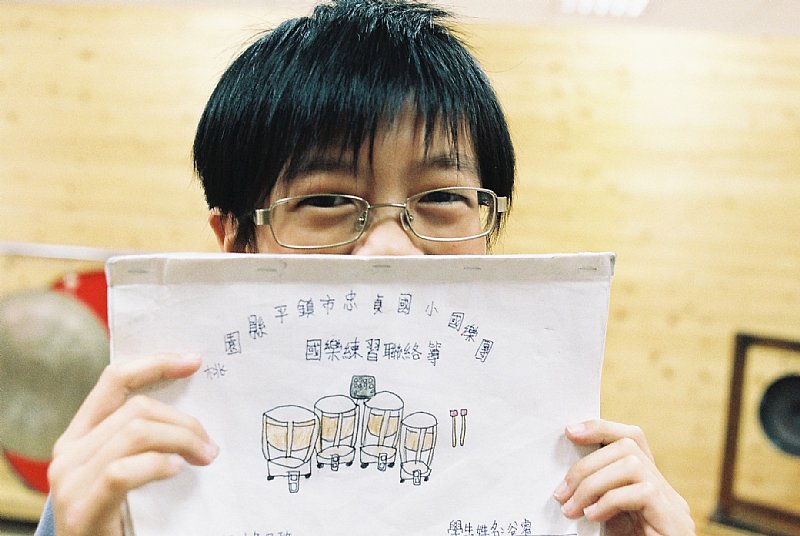 桃園縣平鎮市忠貞國小國樂團
國樂練習聯絡簿
學生姓名: